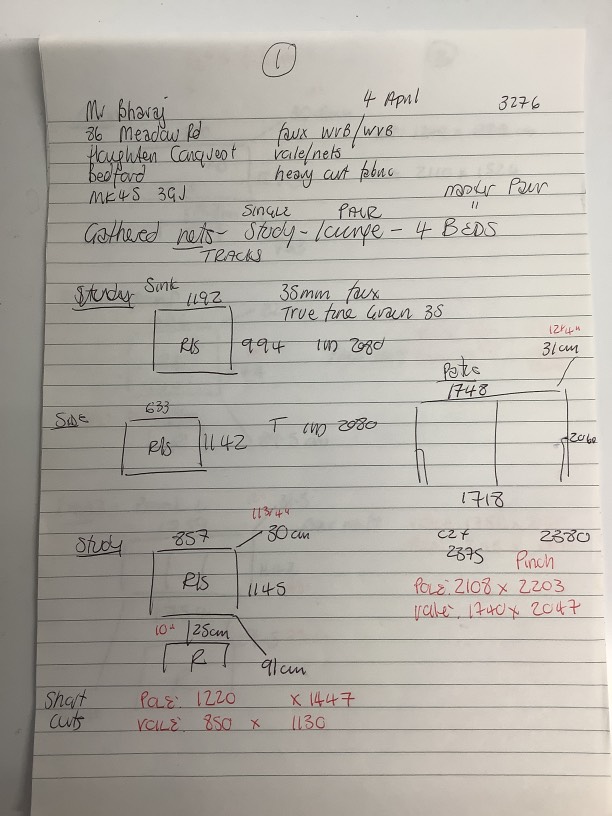 1
Mr Bharaj 4 April 3276
36 Meadow Rd faux WVB/WVB
Haughten Conquest vale/nets
Bedford heavy curt fabric
MK45 3GJ master Pair
SINGLE PAIR "
Gathered nets - Study - lounge - 4 BEDS
TRACKS
Study Sink 1192 35mm faux
True fine Grain 35
R/s 994 2080
12r4"
31cm
Patio
1748
Side 633
R/s 1142 T 2080
2060
1718
113r4"
Study 857 30cm C2F 2380
2375 Pinch
R/s 1145 Pole: 2108 x 2203
vale: 1740 x 2047
10" 25cm
R 91cm
Short Pole: 1220 x 1447
Curts vale: 850 x 1130